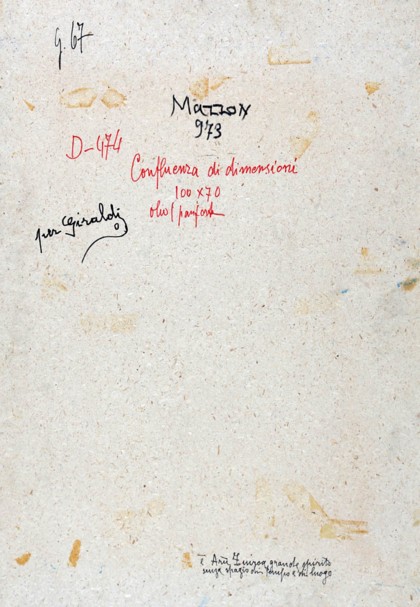 G. 67
Mazzon
973
D-474
Confluenza di dimensioni
100 x 70
olio/panforte
per Giraldi
grande spirito
senza spazio tempo